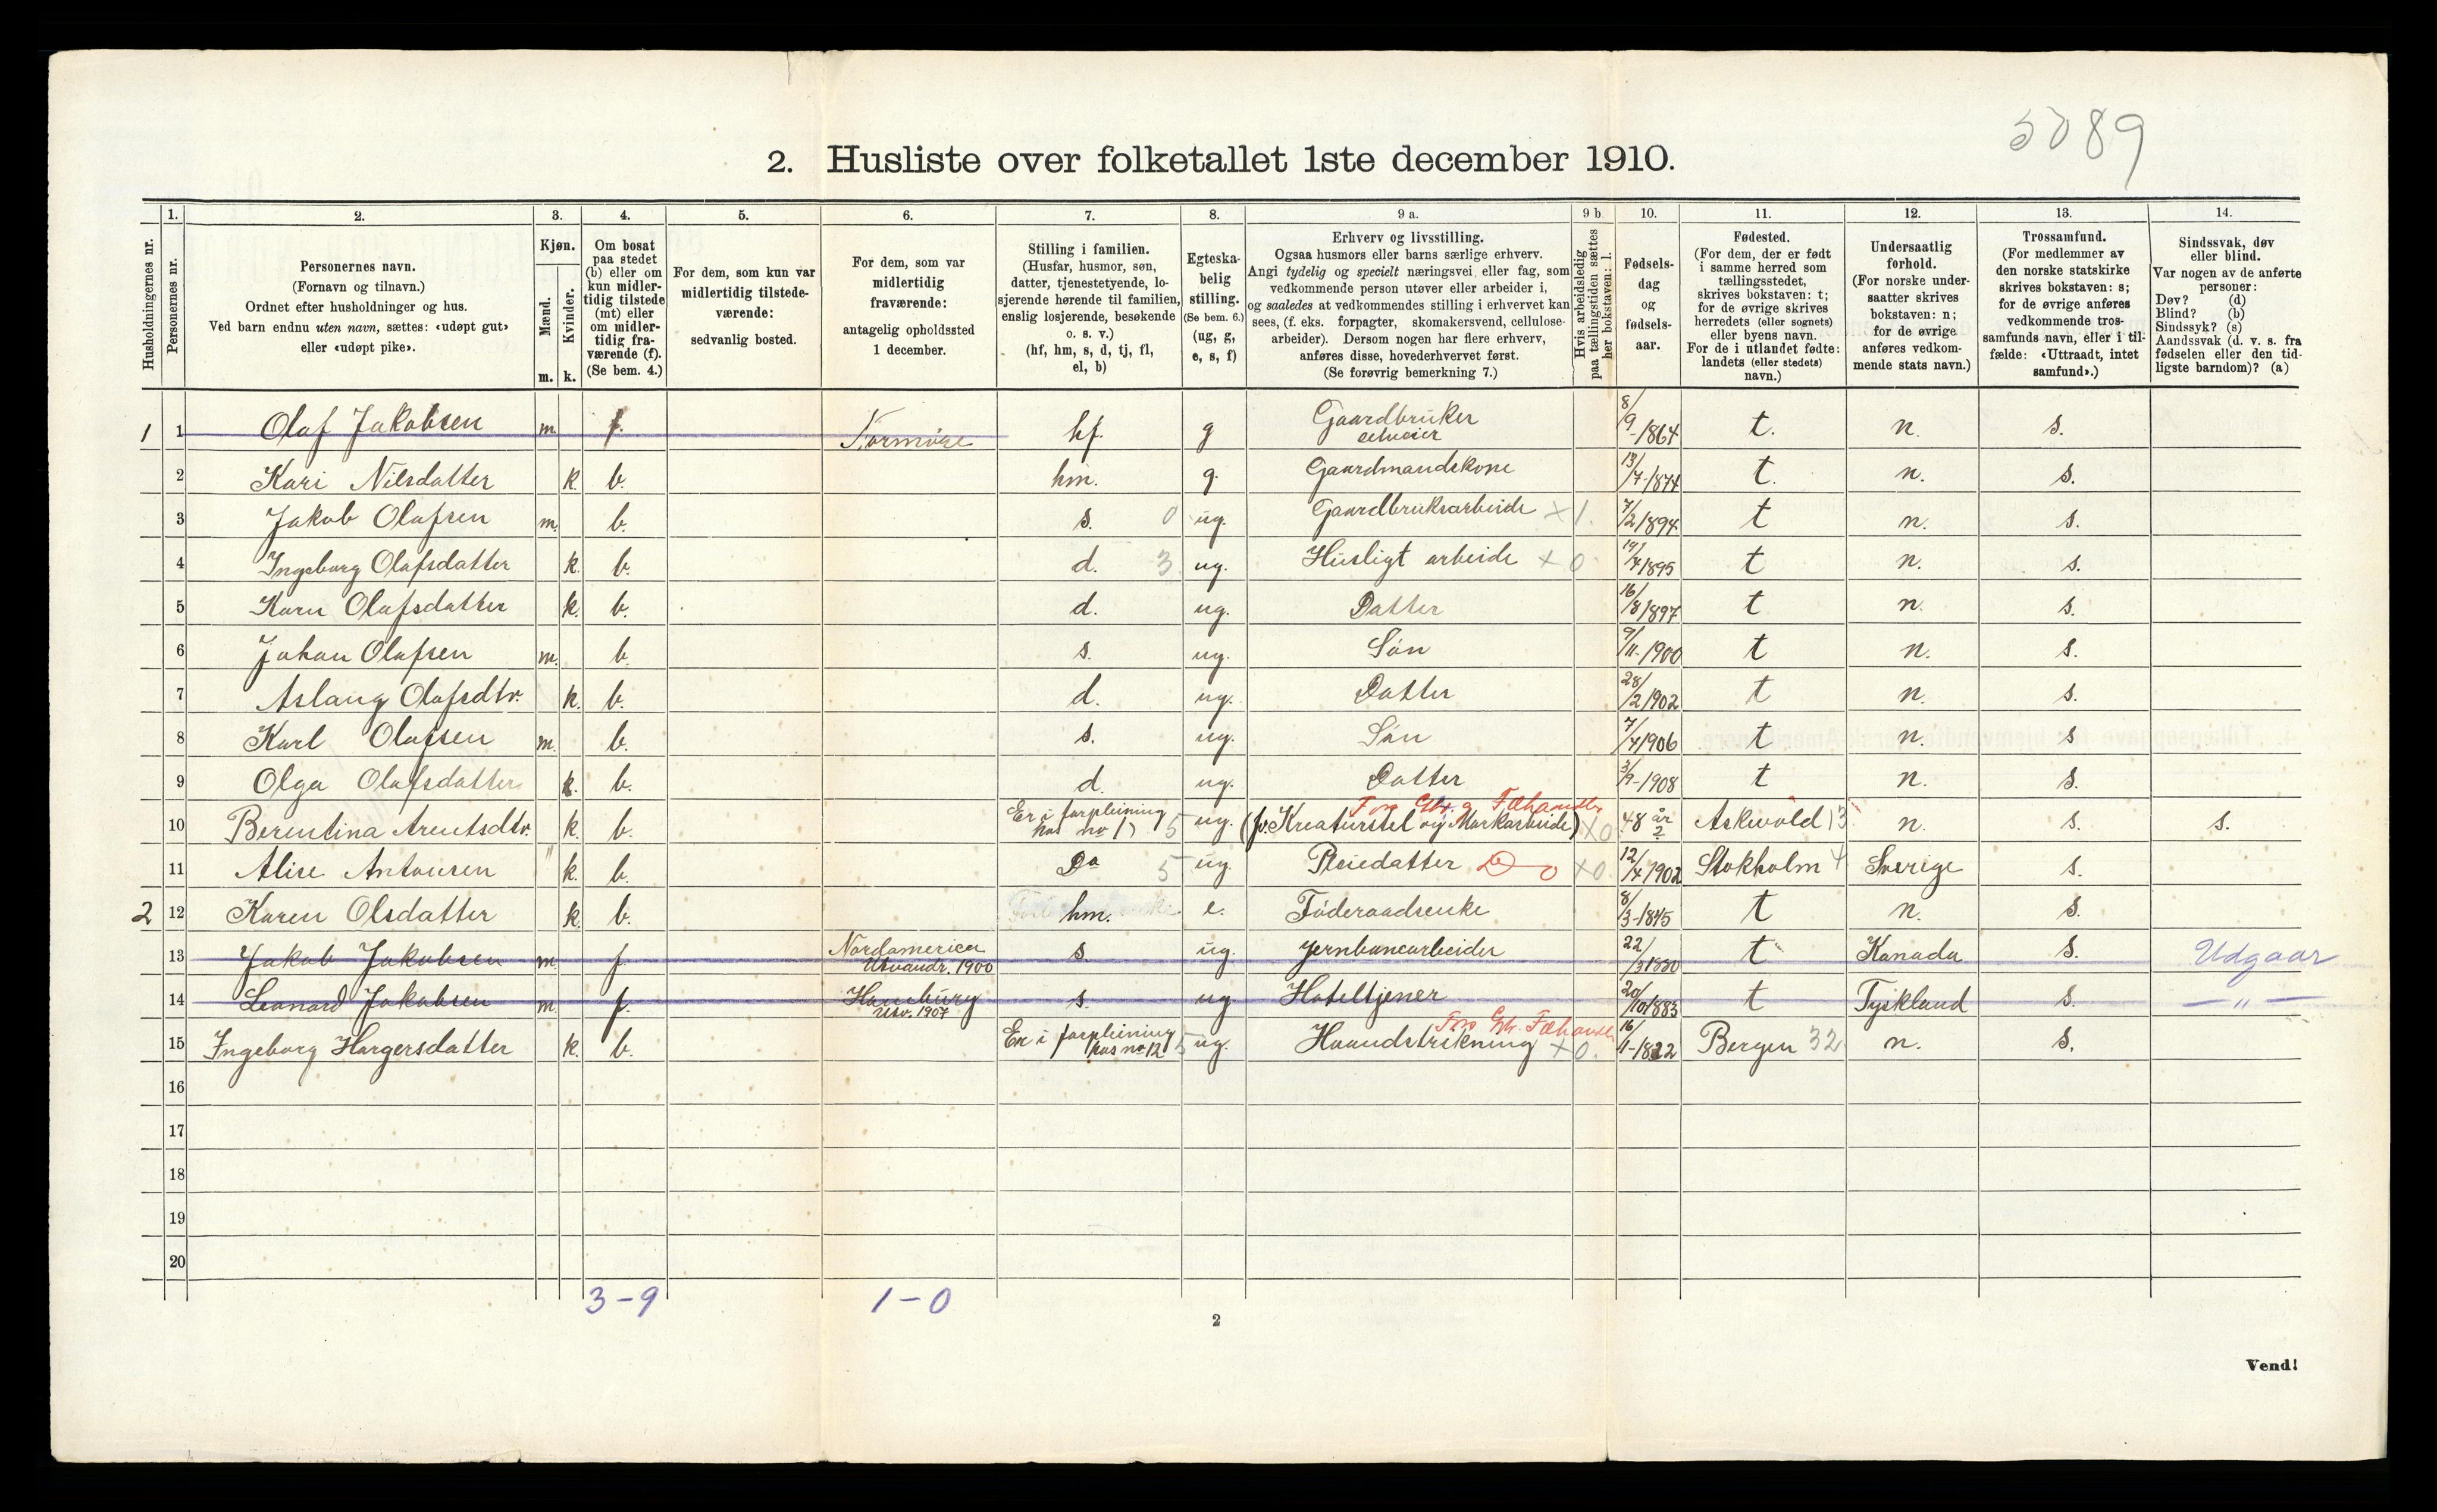 5089
2. Husliste over folketallet 1ste december 1910.
Husholdningernes nr.
1.
Personernes nr.
2.
Personernes navn.
(Fornavn og tilnavn.)
Ordnet efter husholdninger og hus.
Ved barn endnu uten navn, sættes: «udøpt gut»
eller «udøpt pike».
3.
Kjøn.
Mænd.
Kvinder.
m.
k.
4.
Om bosat
paa stedet
(b) eller om
kun midler-
tidig tilstede
(mt) eller
om midler-
tidig fra-
værende (f).
(Se bem. 4.)
5.
For dem, som kun var
midlertidig tilstede-
værende:
sedvanlig bosted.
6.
For dem, som var
midlertidig
fraværende:
antagelig opholdssted
1 december.
7.
Stilling i familien.
(Husfar, husmor, søn,
datter, tjenestetyende, lo-
sjerende hørende til familien,
enslig losjerende, besøkende
o. s. v.)
(hf, hm, s, d, tj, fl,
el, b)
8.
Egteska-
belig
stilling.
(Se bem. 6.)
(ug, g,
e, s, f)
9 a.
Erhverv og livsstilling.
Ogsaa husmors eller barns særlige erhverv.
Angi tydelig og specielt næringsvei eller fag, som
vedkommende person utøver eller arbeider i,
og saaledes at vedkommendes stilling i erhvervet kan
sees, (f. eks. forpagter, skomakersvend, cellulose-
arbeider). Dersom nogen har flere erhverv,
anføres disse, hovederhvervet først.
(Se forøvrig bemerkning 7.)
9 b.
Hvis arbeidsledig
paa tællingstiden sættes
her bokstaven: l.
10.
Fødsels-
dag
og
fødsels-
aar.
11.
Fødested.
(For dem, der er født
i samme herred som
tællingsstedet,
skrives bokstaven: t;
for de øvrige skrives
herredets (eller sognets)
eller byens navn.
For de i utlandet fødte:
landets (eller stedets)
navn.)
12.
Undersaatlig
forhold.
(For norske under-
saatter skrives
bokstaven: n;
for de øvrige
anføres vedkom-
mende stats navn.)
13.
Trossamfund.
(For medlemmer av
den norske statskirke
skrives bokstaven: s;
for de øvrige anføres
vedkommende tros-
samfunds navn, eller i til-
fælde: «Uttraadt, intet
samfund».)
14.
Sindssvak, døv
eller blind.
Var nogen av de anførte
personer:
Døv? (d)
Blind? (b)
Sindssyk? (s)
Aandssvak (d. v. s. fra
fødselen eller den tid-
ligste barndom)? (a)
1 1 Olaf Jakobsen m. f. Normøre hf. g Gaardbruker selveier 8/9-1864 t. n. s.
2 Kari Nilsdatter k. b. hm. g. Gaardmandskone 13/7-1874 t. n. s.
3 Jakob Olafsen m. b. s. 0 ug. Gaardbruksarbeide x 1. 7/2 1894 t n. s.
4 Ingeborg Olafsdatter k. b. d. 3 ug. Husligt arbeide x 0 19/4 1895 t n. s.
5 Karn Olafsdatter k. b. d. ug. Datter 16/8 1897 t n. s.
6 Johan Olafsen m. b. s. ug. Søn 9/11-1900 t n. s.
7 Aslaug Olafsdtr. k. b. d. ug. Datter 28/2 1902 t n. s.
8 Karl Olafsen m. b. s. ug. Søn 7/4 1906 t n. s
9 Olga Olafsdatter k. b. d. ug. Datter 3/9-1908 t n. s.
10 Berentina Arentsdtr. k. b. Er i forpleining hos no 1) 5 ug. (fv. Kreaturstel og Markarbeide) x 0 48 år ? Askvold 13 n. s. s.
11 Alise Antonsen " k. b. Do 5 ug. Pleiedatter x 0 12/4 1902 Stokholm 4 Sverige s.
2 12 Karen Olsdatter k. b. hm. e. Føderaadsenke 8/3-1845 t n. s.
13 Jakob Jakobsen m. f. Nordamerica Utvandr. 1900 s. ug. Jernbanearbeider 22/3 1880 t Kanada s. Udgaar
14 Leonard Jakobsen m. f. Hamburg Utv. 1907 s. ug Hoteltjener 20/10 1883 t Tyskland s. — " —
15 Ingeborg Hargersdatter k. b. Er i forpleining hos no 12 5 ug. Haandstrikning x 0. 16/1-1822 Bergen 32 n. s.
16
17
18
19
20
3 - 9 1 - 0
2
Vend!